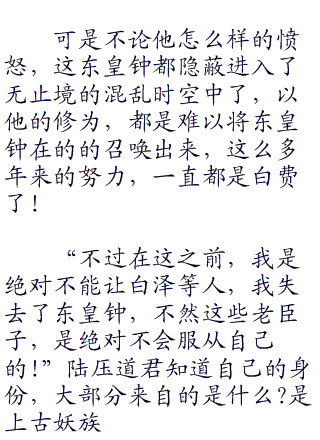 可是不论他怎么样的愤
怒，这东皇钟都隐蔽进入了
无止境的混乱时空中了，以
他的修为，都是难以将东皇
钟在的的召唤出来，这么多
年来的努力，一直都是白费
了！
“不过在这之前，我是
绝对不能让白泽等人，我失
去了东皇钟，不然这些老臣
子，是绝对不会服从自己
的！”陆压道君知道自己的身
份，大部分来自的是什么？是
上古妖族